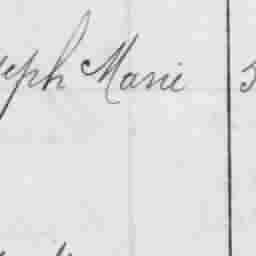 seph Marie 5